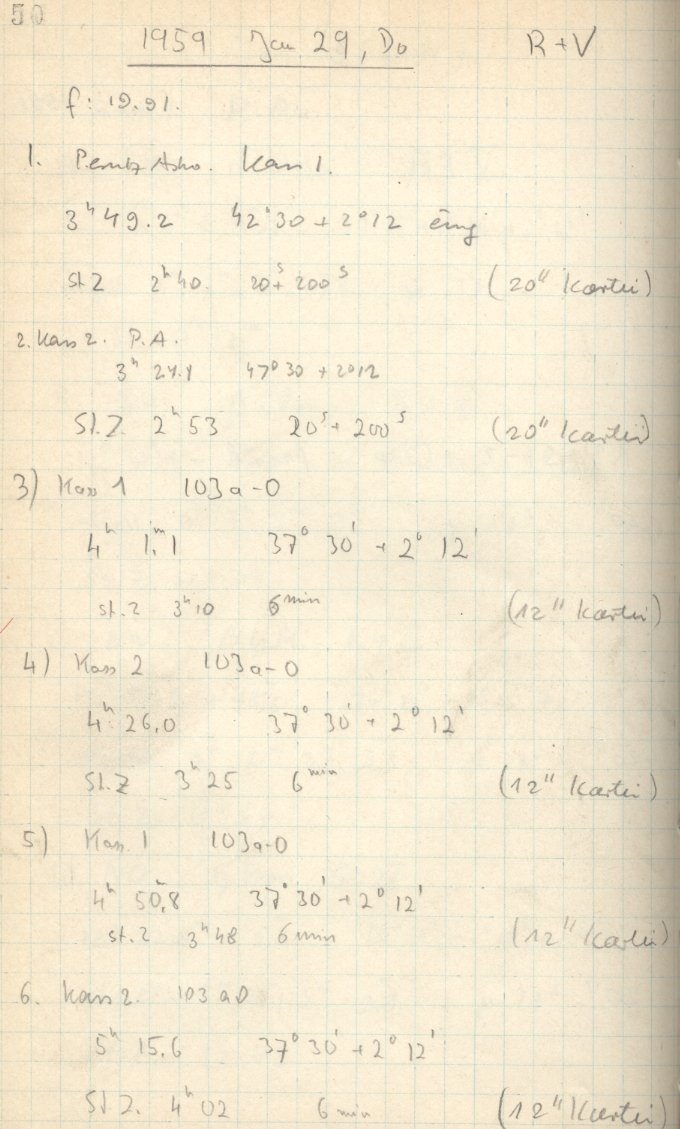 50
1959 Jan 29, Do R+V
f: 19.91.
1. Perutz Astro. Kass 1.
3ʰ 49.2 42°30 + 2°12
St Z 2ʰ 40. 20ˢ + 200ˢ (20" Kartei)
2. Kass 2. P.A.
3ʰ 24.1 47°30 + 2°12
St.Z. 2ʰ 53 20ˢ + 200ˢ (20" Kartei)
3) Kass 1 103a-O
4ʰ 1ᵐ.1 37° 30' + 2° 12'
st.Z 3ʰ10 6ᵐⁱⁿ (12" Kartei)
4) Kass 2 103a-O
4ʰ 26,0 37° 30' + 2° 12'
St.Z 3ʰ 25 6ᵐⁱⁿ (12" Kartei)
5) Kass 1 103a-O
4ʰ 50,8 37° 30' + 2° 12'
st.Z 3ʰ 48 6 min (12" Kartei)
6. Kass 2. 103 aO
5ʰ 15.6 37° 30' + 2° 12'
St Z. 4ʰ 02 6 min (12" Kartei)